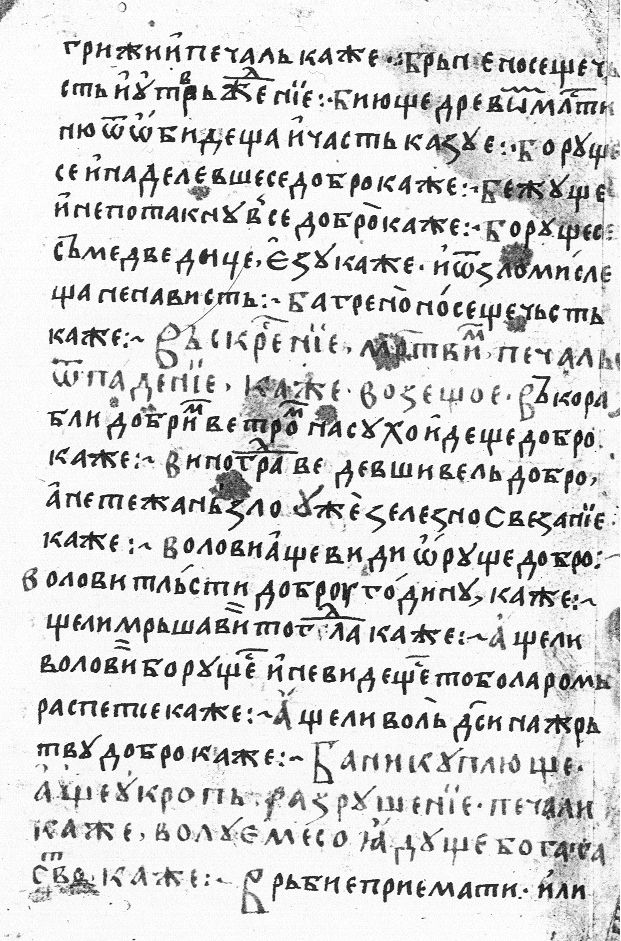 грижи и҆ печаль каже ·:· Брьне носеще чь
сть и҆ ꙋ҆твръжⷣенїе:· Биюще древѡⷨ млⷭ҇ти
ню ѿ ѡ҆бидеща и҆ часть казꙋе:· Борꙋще
се и҆ надѣлевше се добро каже:~ Бежꙋще
и҆ не потакнꙋвⷲ҇е добро каже:~ Борꙋще се
съ медведи҆це, е҆зꙋ каже · и҆ ѿ зло мисле
ща ненависть:~ Батрено носеще чьсть
каже:~ Въскрⷭ҇енїе, мрⷮ҇твиⷨ, печаль
ѿпаденїе, каже · возещое · Въ кора
бли добриⷨ ветроⷨ на сꙋхо и҆деще добро
каже:~ Вино трⷣаве девши вель добро,
а҆ не тежань зло ꙋ҆же железно свезанїе ·
каже:~ Волови а҆ще види ѡ҆рꙋще добро:
Волови тлъсти доброꙋ годинꙋ, каже:~
щели мръшавїи то гⷧ҇ла каже:~ а҆щели
воловїи борꙋщеⷭ҇ и҆ не видещеⷭ҇ то боларомь
распетие каже:~ А҆щели воль дⷭ҇си на жръ
твꙋ добро каже:~ Бани кꙋплюще ·
а҆ще ꙋ҆кропь · разрꙋшенїе · печали
каже, волꙋе месо ꙗ҆дꙋще богата
сⷮ҇во · каже:~ Врьбие приемати · и҆ли